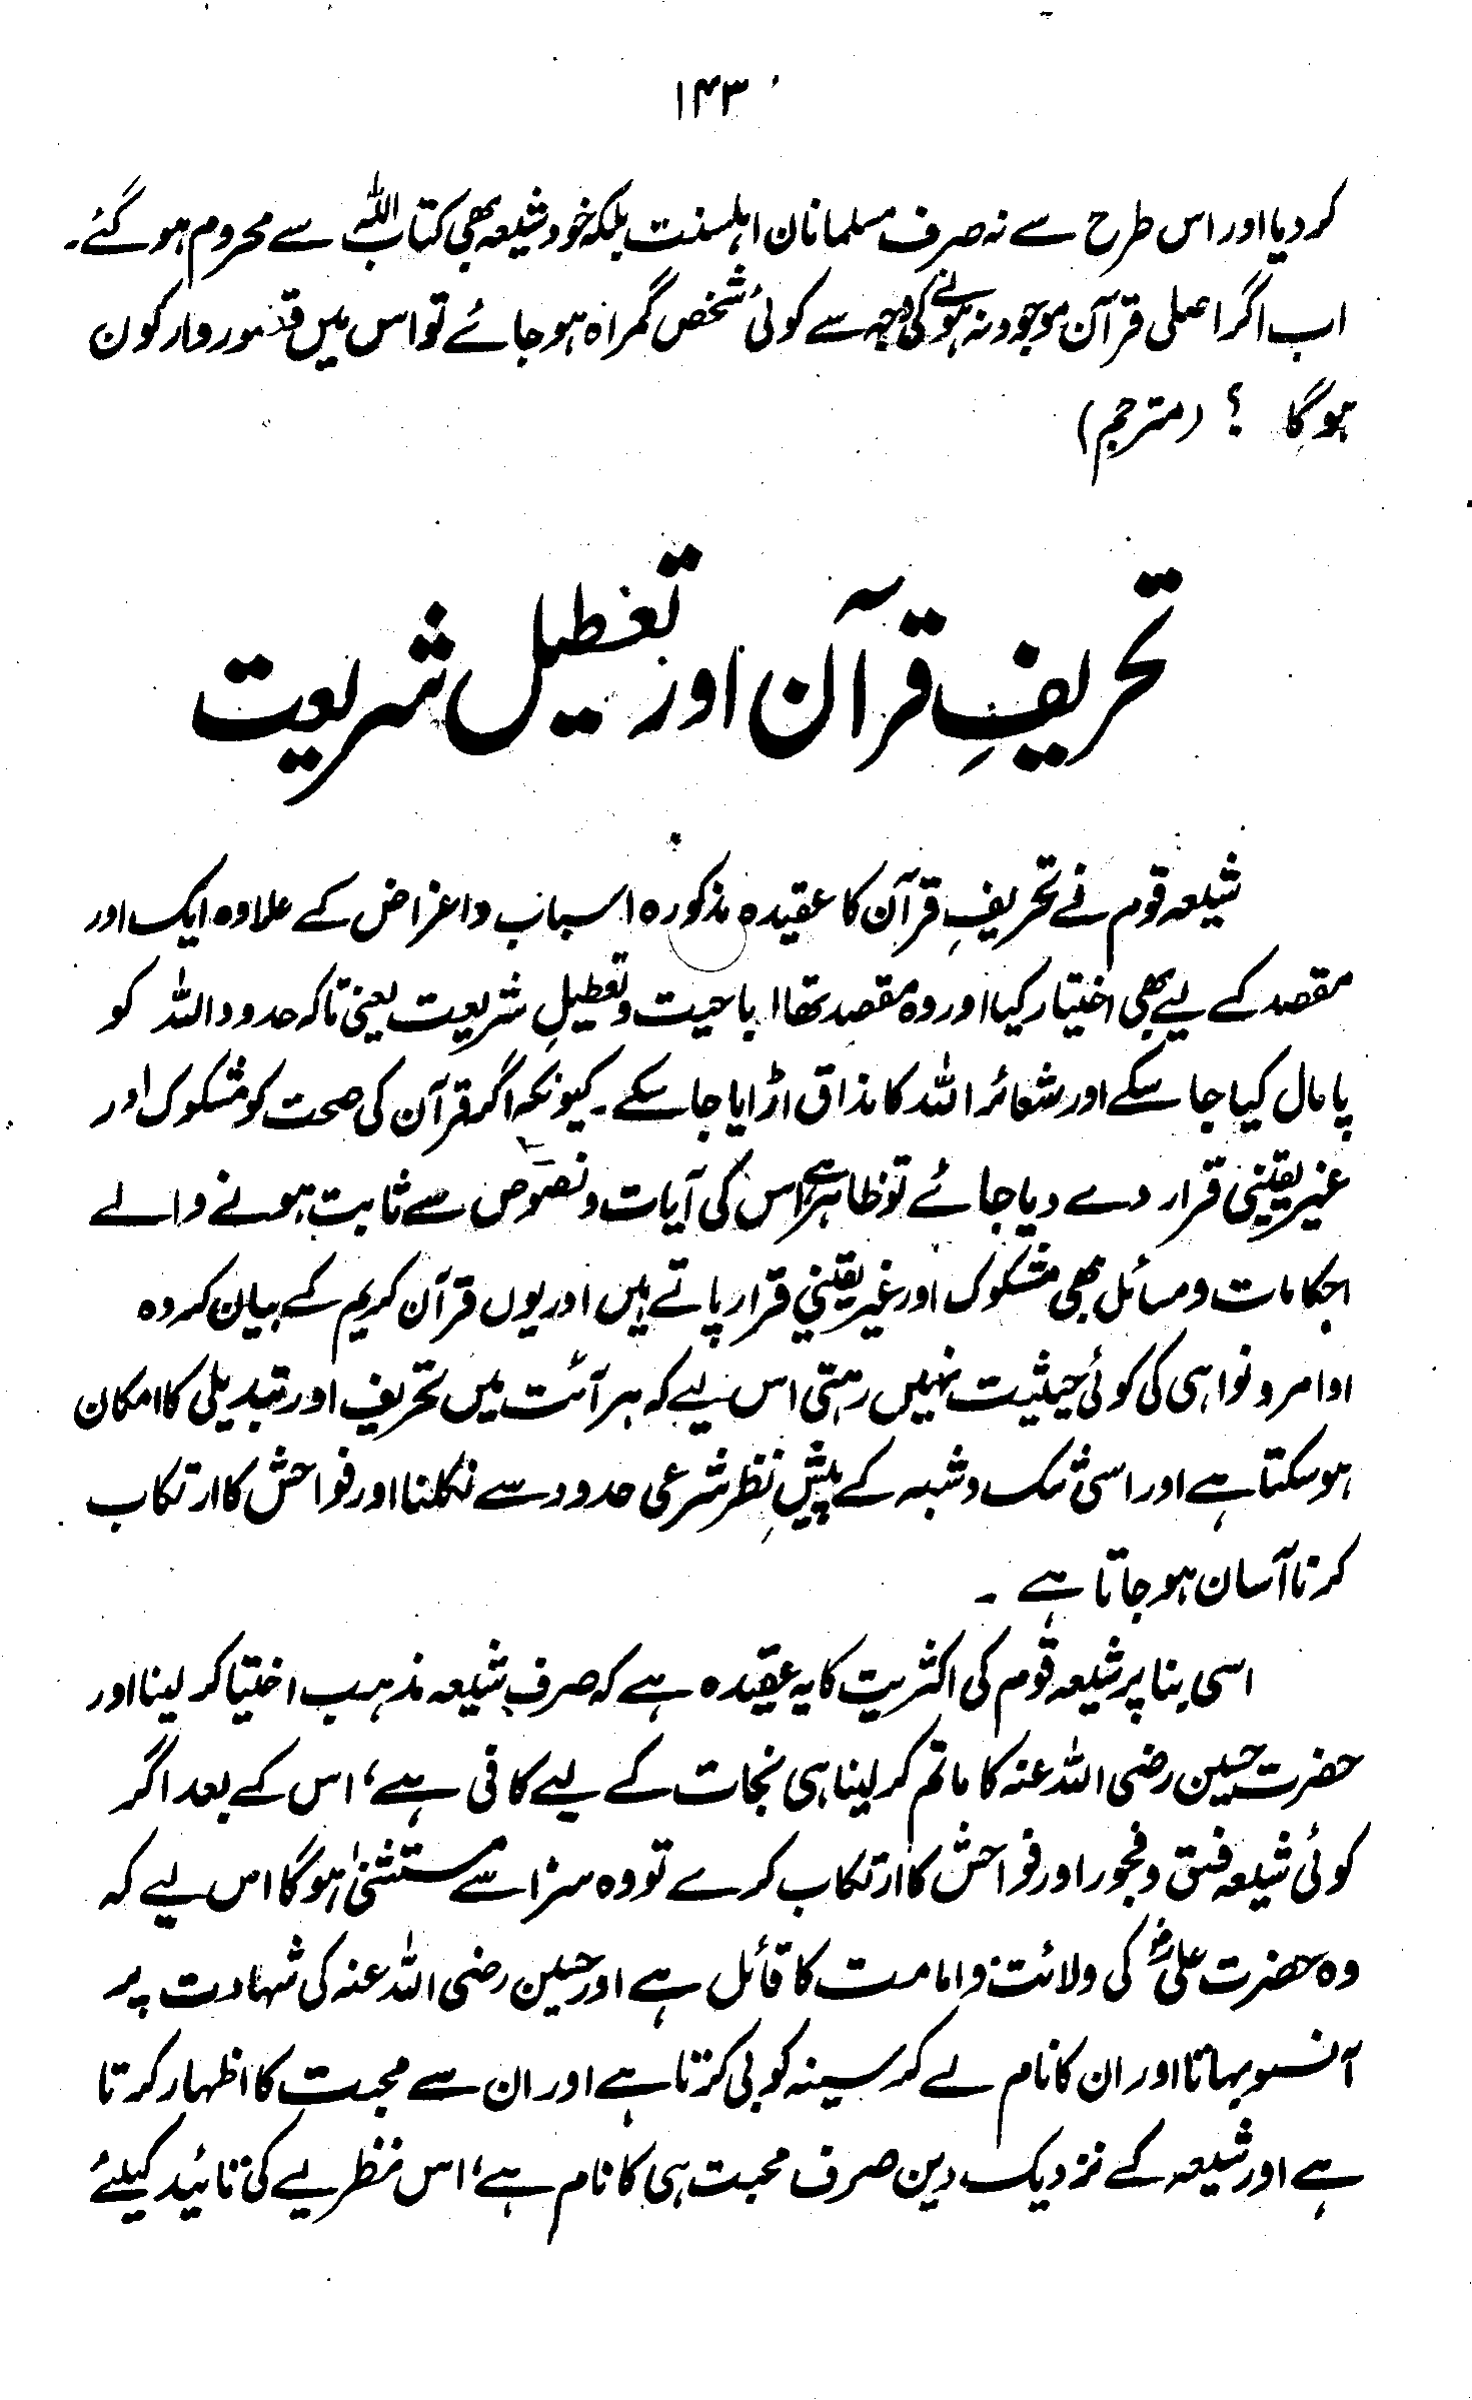 ۱۴۳
کر دیا اور اس طرح سے نہ صرف مسلمانان اہلسنت بلکہ خود شیعہ بھی کتاب اللہ سے محروم ہو گئے۔
اب اگر اصلی قرآن موجود نہ ہونے کی وجہ سے کوئی شخص گمراہ ہو جائے تو اس میں قصور وار کون
ہوگا ؟ (مترجم)
تحریفِ قرآن اور تعطیل شریعت
شیعہ قوم نے تحریفِ قرآن کا عقیدہ مذکورہ اسباب و اغراض کے علاوہ ایک اور
مقصد کے لیے بھی اختیار کیا اور وہ مقصد تھا اباحیت و تعطیلِ شریعت یعنی تاکہ حدود اللہ کو
پامال کیا جا سکے اور شعائر اللہ کا مذاق اڑایا جا سکے۔ کیونکہ اگر قرآن کی صحت کو مشکوک اور
غیر یقینی قرار دے دیا جائے تو ظاہر ہے اس کی آیات و نصوص سے ثابت ہونے والے
احکامات و مسائل بھی مشکوک اور غیر یقینی قرار پاتے ہیں اور یوں قرآن کریم کے بیان کردہ
اوامر و نواہی کی کوئی حیثیت نہیں رہتی اس لیے کہ ہر آئت میں تحریف اور تبدیلی کا امکان
ہو سکتا ہے اور اسی شک و شبہ کے پیشِ نظر شرعی حدود سے نکلنا اور فواحش کا ارتکاب
کرنا آسان ہو جاتا ہے ۔
اسی بنا پر شیعہ قوم کی اکثریت کا یہ عقیدہ ہے کہ صرف شیعہ مذہب اختیا کر لینا اور
حضرت حسین رضی اللہ عنہ کا ماتم کر لینا ہی نجات کے لیے کافی ہے، اس کے بعد اگر
کوئی شیعہ فسق و فجور اور فواحش کا ارتکاب کرے تو وہ سزا سے مستثنیٰ ہوگا اس لیے کہ
وہ حضرت علیؓ کی ولائت و امامت کا قائل ہے اور حسین رضی اللہ عنہ کی شہادت پر
آنسو بہاتا اور ان کا نام لے کر سینہ کوبی کرتا ہے اور ان سے محبت کا اظہار کرتا
ہے اور شیعہ کے نزدیک دین صرف محبت ہی کا نام ہے، اس نظریے کی تائید کیلئے